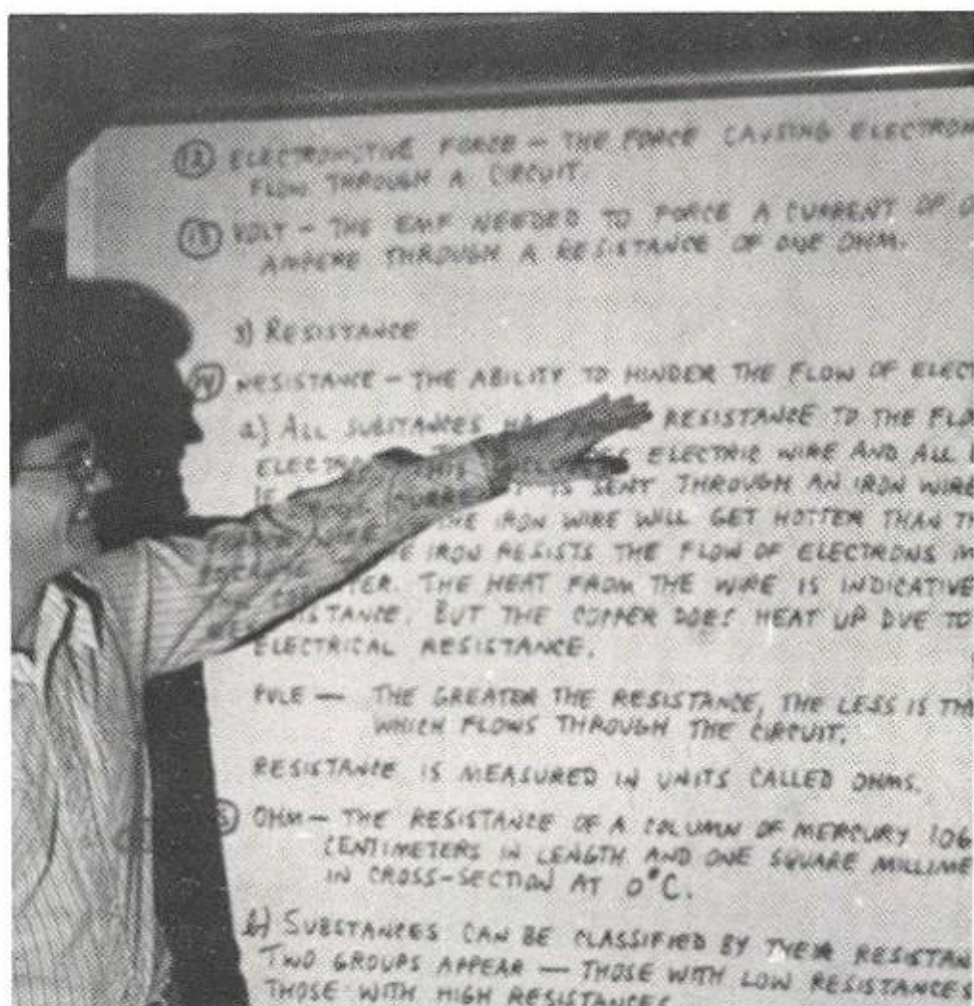 (12) ELECTROMOTIVE FORCE — THE FORCE CAUSING ELECTRON
FLOW THROUGH A CIRCUIT.
(13) VOLT — THE EMF NEEDED TO FORCE A CURRENT OF
AMPERE THROUGH A RESISTANCE OF ONE OHM.
3) RESISTANCE
(14) RESISTANCE — THE ABILITY TO HINDER THE FLOW OF ELECT
a) ALL SUBSTANCES RESISTANCE TO THE FLO
ELECTRIC WIRE AND ALL
IS SENT THROUGH AN IRON WIRE
THE IRON WIRE WILL GET HOTTER THAN
IRON RESISTS THE FLOW OF ELECTRONS
THE HEAT FROM THE WIRE IS INDICATIVE
BUT THE COPPER DOES HEAT UP DUE TO
ELECTRICAL RESISTANCE.
RULE — THE GREATER THE RESISTANCE, THE LESS IS TH
WHICH FLOWS THROUGH THE CIRCUIT.
RESISTANCE IS MEASURED IN UNITS CALLED OHMS.
OHM — THE RESISTANCE OF A COLUMN OF MERCURY 106
CENTIMETERS IN LENGTH AND ONE SQUARE MILLIME
IN CROSS-SECTION AT 0°C.
b) SUBSTANCES CAN BE CLASSIFIED BY THEIR RESISTAN
TWO GROUPS APPEAR — THOSE WITH LOW RESISTANCES
THOSE WITH HIGH RESISTANCES